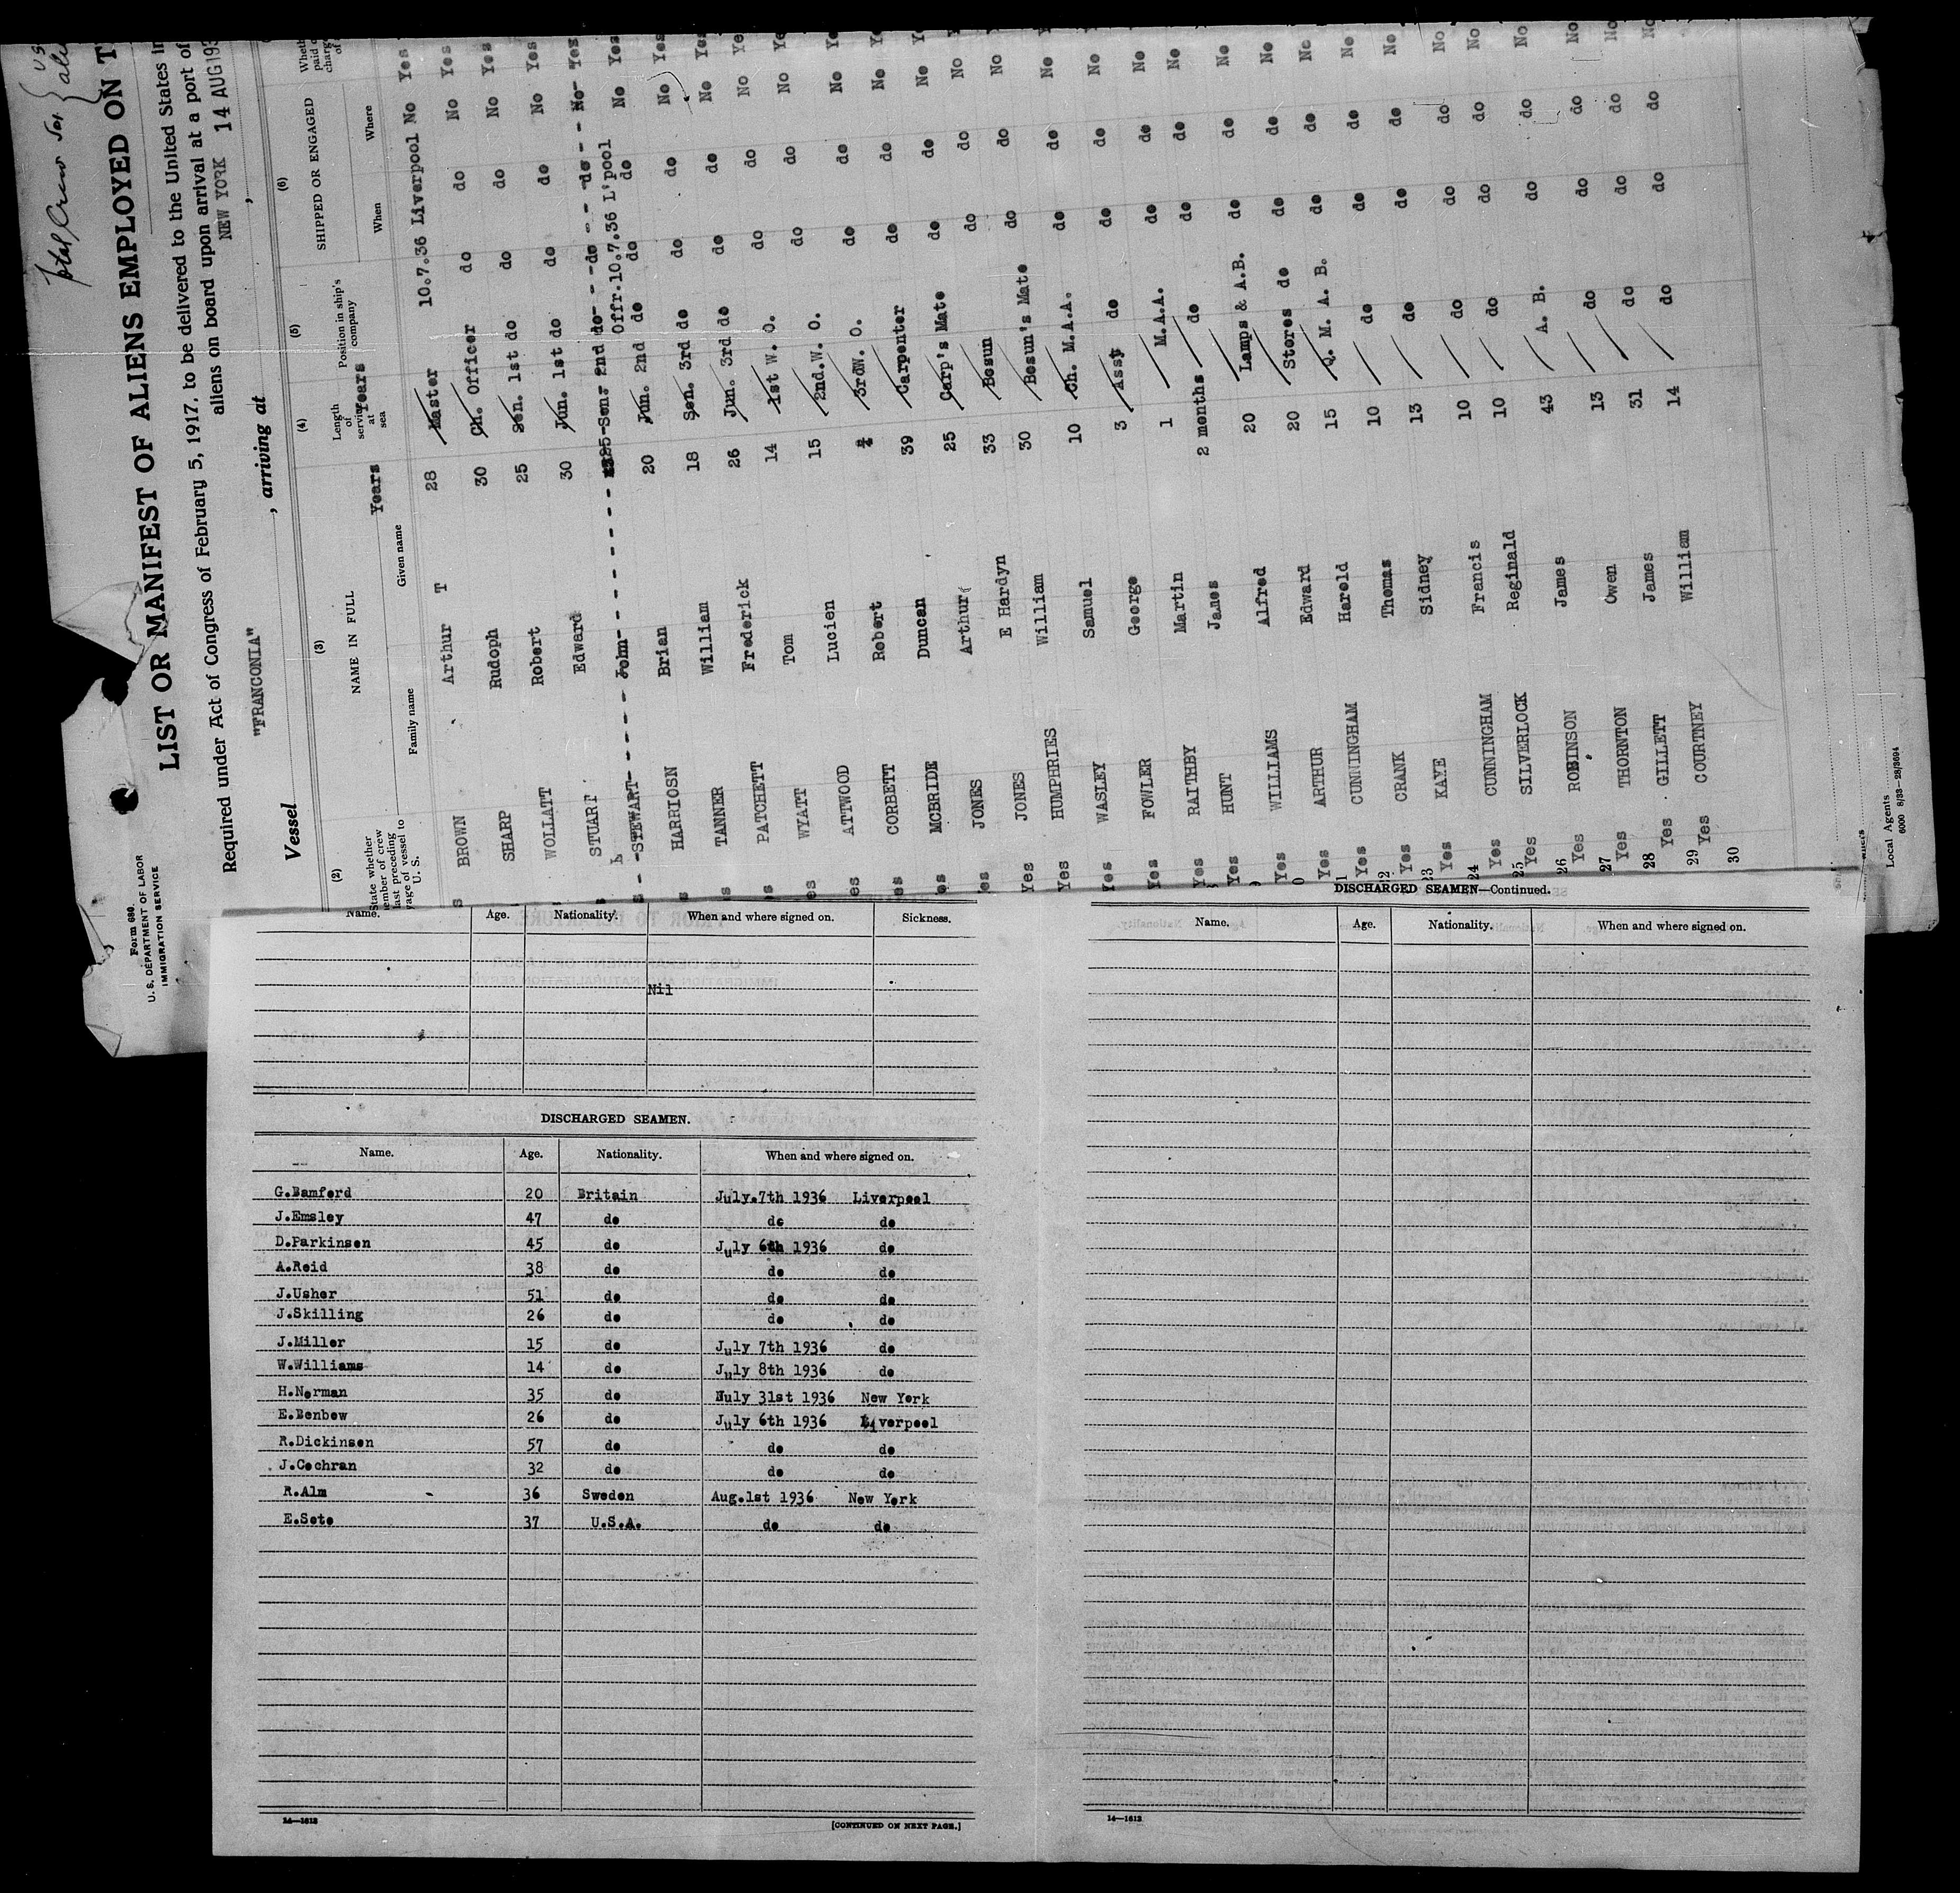 Total Crew
Form 680
U. S. DEPARTMENT OF LABOR
IMMIGRATION SERVICE
LIST OR MANIFEST OF ALIENS EMPLOYED ON T
Required under Act of Congress of February 5, 1917, to be delivered to the United States
aliens on board upon arrival at a port of
NEW YORK 14 AUG 193
"FRANCONIA"
Vessel , arriving at ,
(2) (3) (4) (5) (6)
State whether member of crew last preceding voyage of vessel to U. S.
NAME IN FULL
Family name Given name
Years
Length of service at sea
Years
Position in ship's company
SHIPPED OR ENGAGED
When Where
BROWN Arthur T 28 Master 10.7.36 Liverpool No Yes
SHARP Rudoph 30 Ch. Officer do do No Yes
WOLLATT Robert 25 Sen. 1st do do do No Yes
STUART Edward 30 Jun. 1st do do do No Yes
STEWART John 25 Sen. 2nd do do do No Yes
Offr. 10.7.36 L'pool
HARRIOSN Brian 20 Jun. 2nd do do do No Yes
TANNER William 18 Sen. 3rd do do do No Yes
PATCHETT Frederick 26 Jun. 3rd do do do No Yes
WYATT Tom 14 1st W. O. do do No Ye
ATTWOOD Lucien 15 2nd. W. O. do do No Ye
CORBETT Robert 3rdW. O. do do No Ye
MCBRIDE Duncan 39 Carpenter do do No Y
JONES Arthur 25 Carp's Mate do do No Y
JONES E Hardyn 33 Bosun do do No
Yes HUMPHRIES William 30 Bosun's Mate do do No
Yes WASLEY Samuel 10 Ch. M.A.A. do do No
Yes FOWLER George 3 Asst do do do No
Yes RAITHBY Martin 1 M.A.A. do do No
Yes HUNT James 2 months do do do No
Yes WILLIAMS Alfred 20 Lamps & A.B. do do No
Yes ARTHUR Edward 20 Stores do do do No
Yes CUNNINGHAM Harold 15 Q. M. A. B. do do No
Yes CRANK Thomas 10 do do do No
Yes KAYE Sidney 13 do do do No
24 Yes CUNNINGHAM Francis 10 do do do No
25 Yes SILVERLOCK Reginald 10 do do do No
26 Yes ROBINSON James 43 A. B. do do No
27 Yes THORNTON Owen 13 do do do No
28 Yes GILLETT James 31 do do do No
29 Yes COURTNEY William 14 do do do No
30
Local Agents
6000 8/33—28/3694
Name. Age. Nationality. When and where signed on. Sickness.
Nil
DISCHARGED SEAMEN.
Name. Age. Nationality. When and where signed on.
G.Bamford 20 Britain July.7th 1936 Liverpool
J.Emsley 47 do do do
D.Parkinson 45 do July 6th 1936 do
A.Reid 38 do do do
J.Usher 51 do do do
J.Skilling 26 do do do
J.Miller 15 do July 7th 1936 do
W.Williams 14 do July 8th 1936 do
H.Norman 35 do Nuly 31st 1936 New York
E.Benbow 26 do July 6th 1936 Liverpool
R.Dickinson 57 do do do
J.Cochran 32 do do do
R.Alm 36 Sweden Aug.1st 1936 New York
E.Soto 37 U.S.A. do do
14—1613 [CONTINUED ON NEXT PAGE.]
DISCHARGED SEAMEN—Continued.
Name. Age. Nationality. When and where signed on.
14—1613